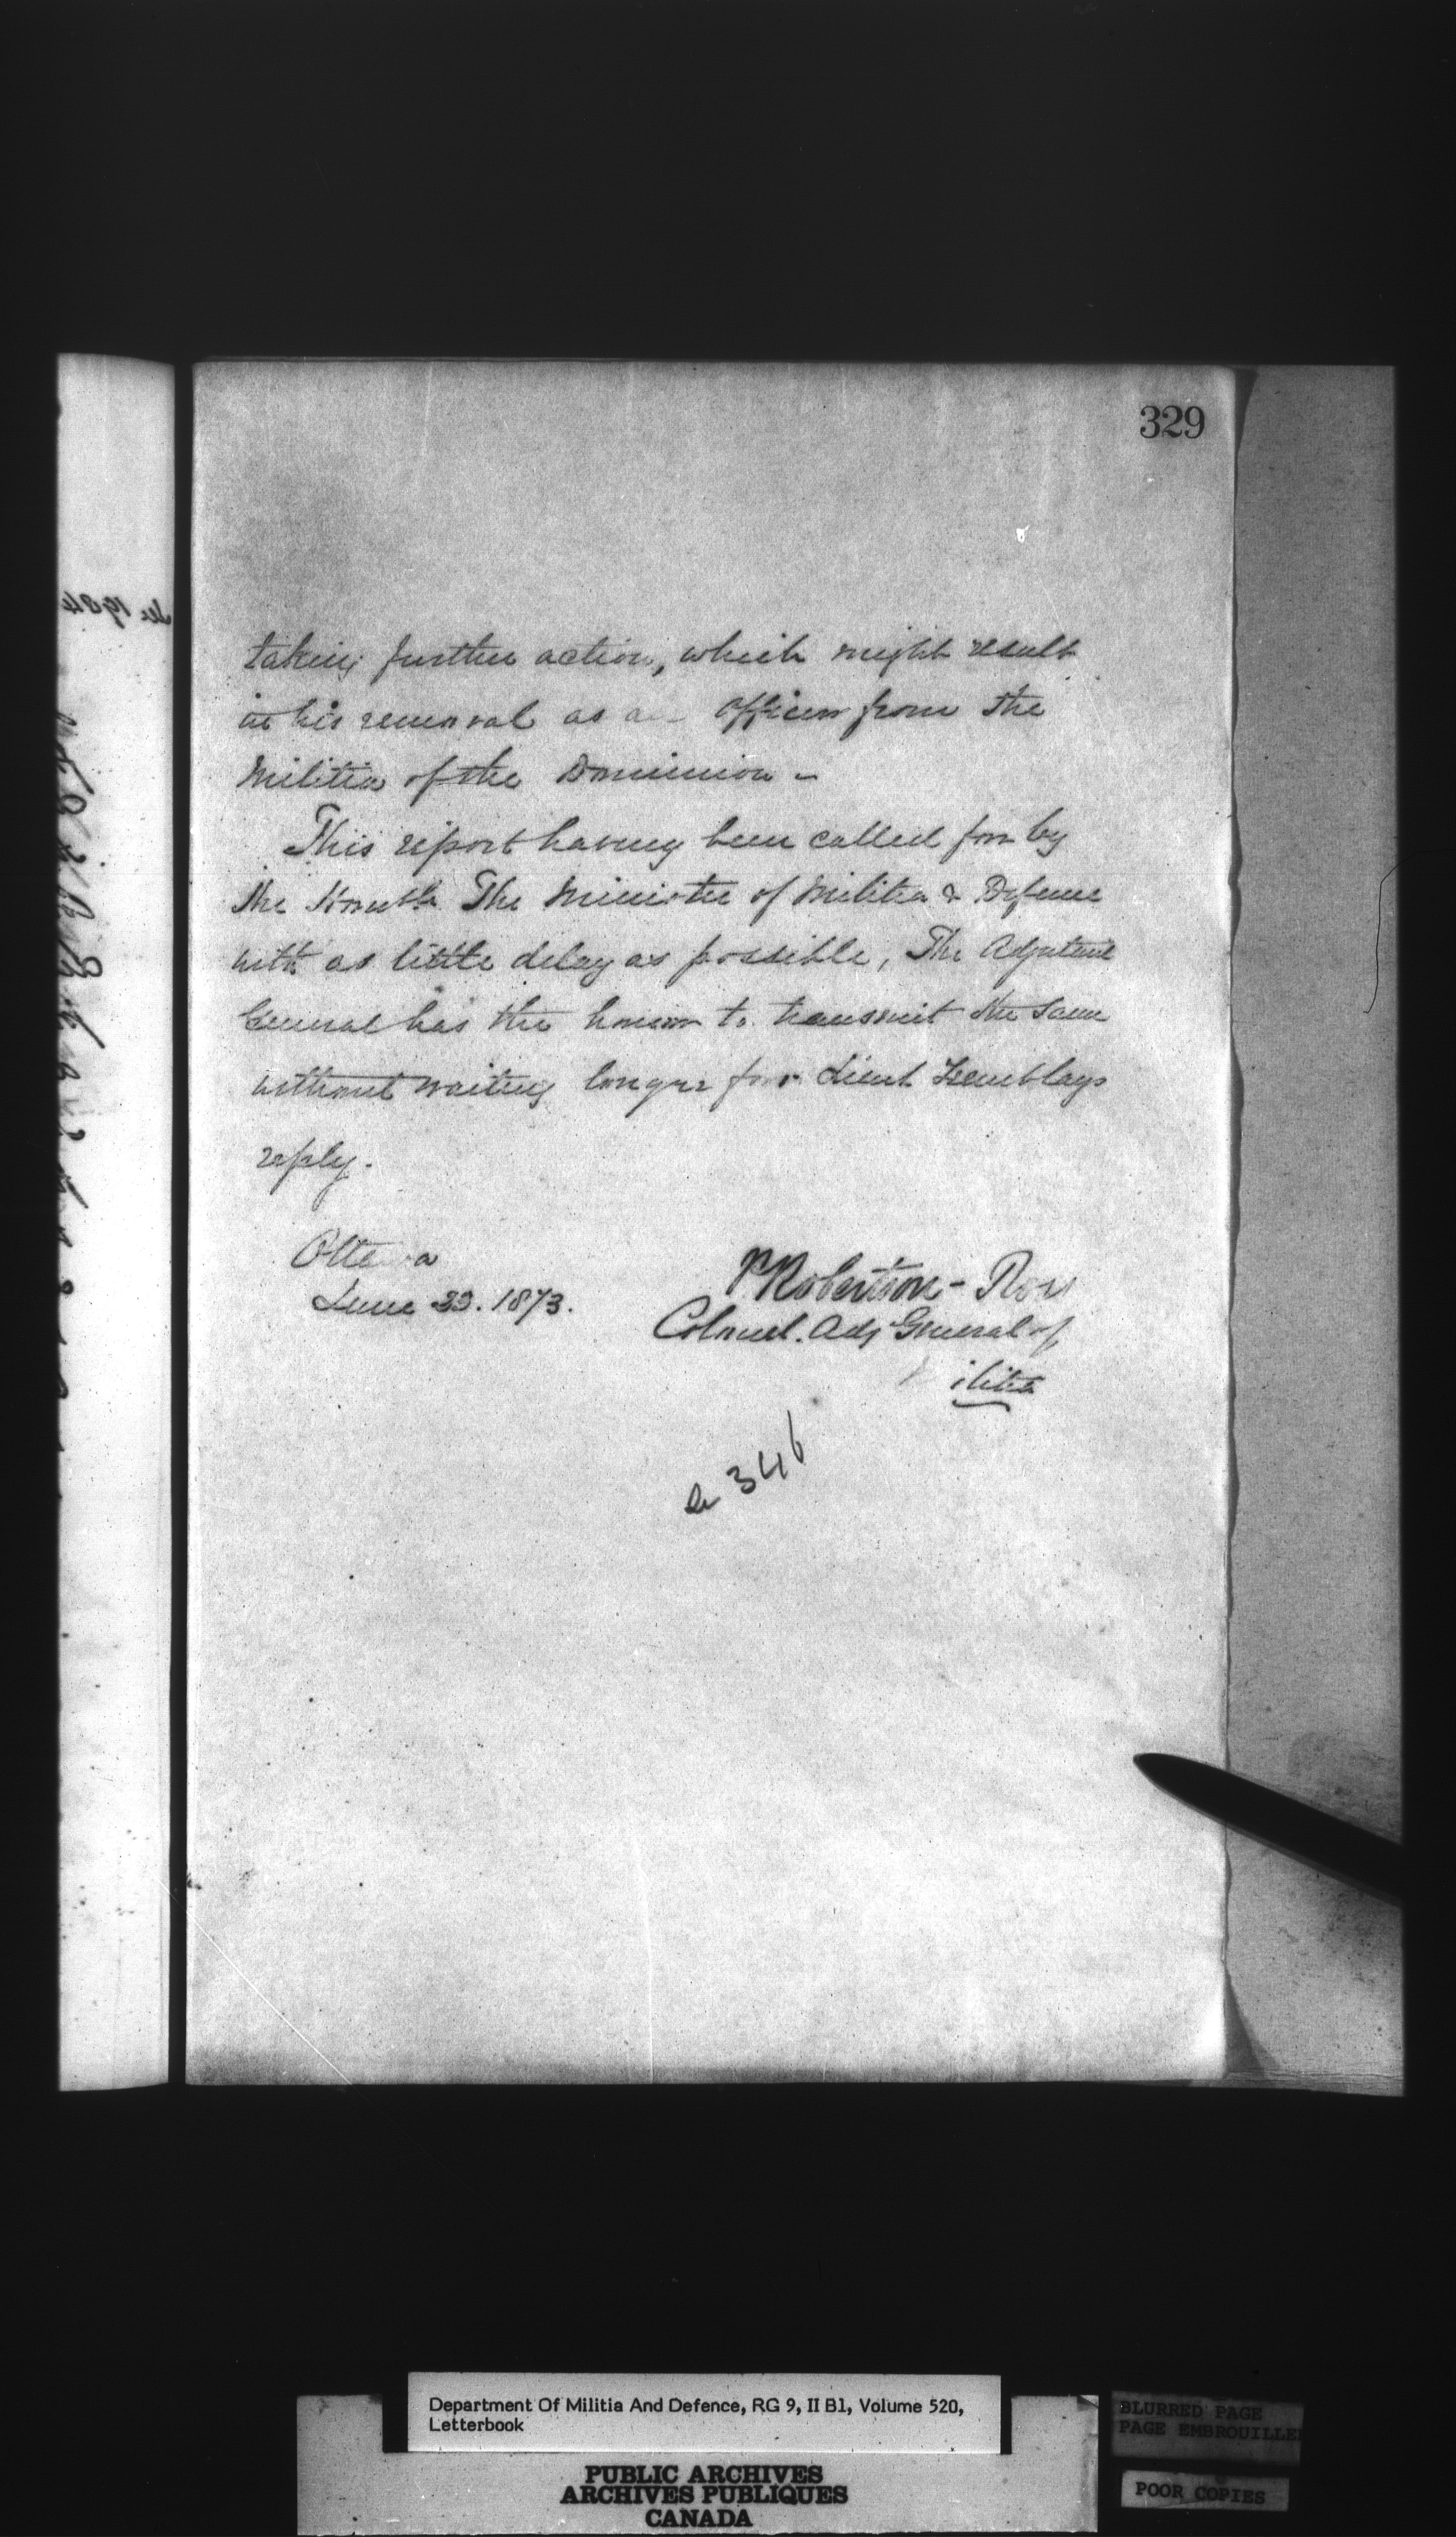 329
taking further action, which might result
in his removal as a officer from the
Militia of the Dominion -
This report having been called for by
the Honble The Minister of Militia & Defence
with as little delay as possible, The Adjutant
General has the honor to transmit the same
without waiting longer for Lieut Tremblays
reply.
Ottawa
June 1873.
P Robertson - Ross
Colonel. Adj General of
ilitia
346
Department Of Militia And Defence, RG 9, II B1, Volume 520,
Letterbook
PUBLIC ARCHIVES
ARCHIVES PUBLIQUES
CANADA
BLURRED PAGE
PAGE EMBROUILLE
POOR COPIES